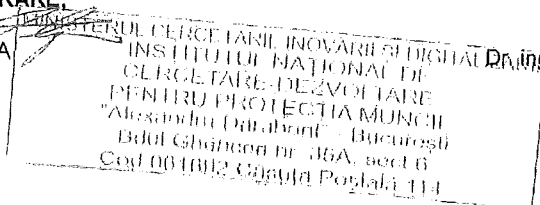 RARE,
MINISTERUL CERCETĂRII, INOVĂRII ȘI DIGITALIZĂRII
A
Dr. ing
INSTITUTUL NAȚIONAL DE
CERCETARE-DEZVOLTARE
PENTRU PROTECȚIA MUNCII
"Alexandru Darabont" - București
Bdul Ghencea nr. 35A, sect 6
Cod 061692 Căsuța Poștală